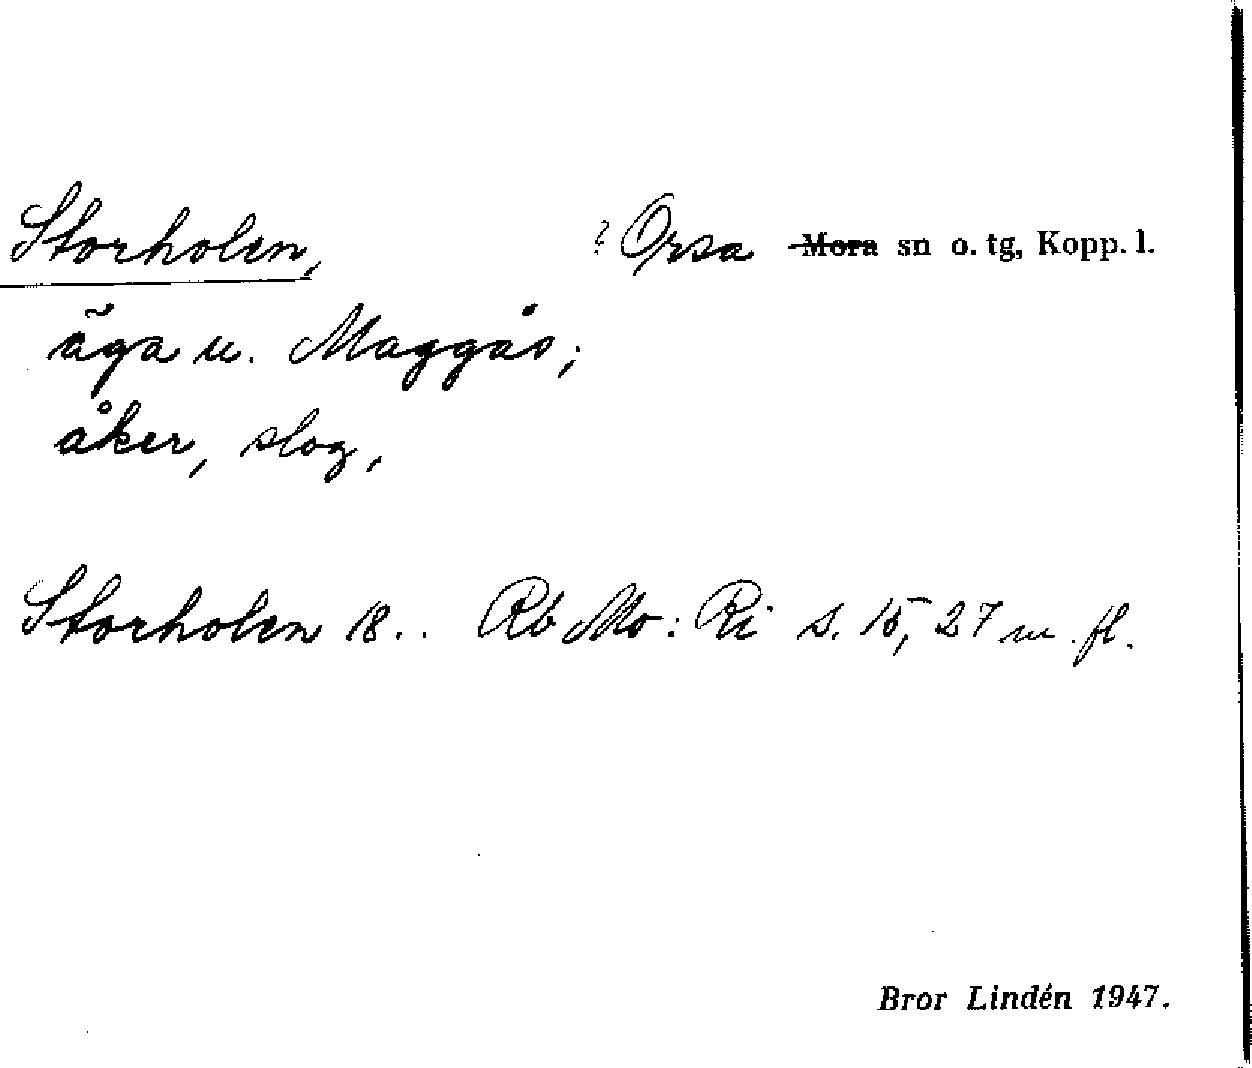 Storholen, ? Orsa Mora sn o. tg, Kopp. l.
äga u. Maggås;
åker, slog,
Storholen 18.. Rb Mo: Ri s. 15, 27 m. fl.
Bror Lindén 1947.